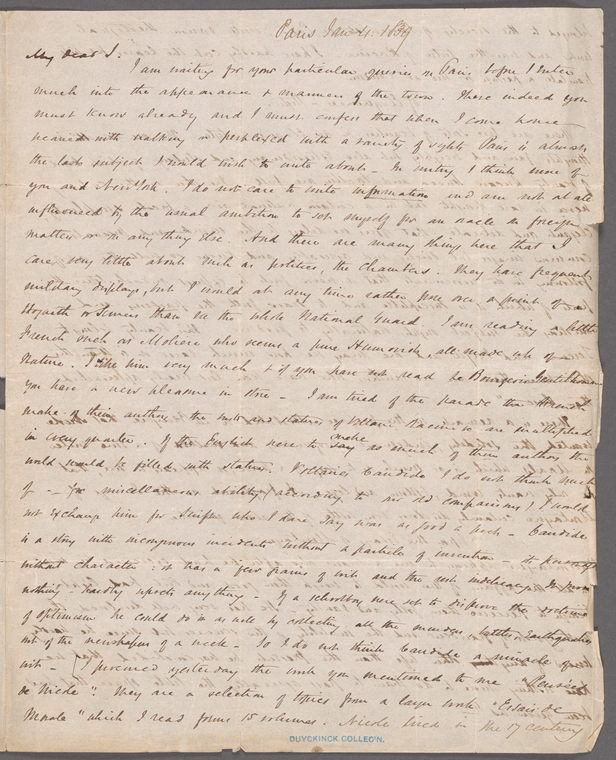 Paris Jan 4. 1839
My dear J.
I am waiting for your particular queries on Paris before I enter
much into the appearance & manners of the town. These indeed you
must know already and I must confess that when I come home
wearied with walking or perplexed with a variety of sights Paris is always
the last subject I would wish to write about. In writing I think more of
you and New York. I do not care to write information and am not at all
influenced by the usual ambition to set myself for an oracle in foreign
matters or in any thing else. And there are many things here that I
care very little about such as politics, the Chambers. They have frequent
military displays, but I would at any time rather pore over a print of
Hogarth or than see the whole National Guard. I am reading a little
French such as Moliere who seems a pure Humorist, all made up of
Nature. I like him very much & if you have not read Le Bourgeois Gentilhomme
you have a new pleasure in store – I am tired of the parade the French
make of their authors, the busts and statues of Voltaire Racine &c are multiplied
in every quarter. If the English were to make as much of their authors the
world would be filled with statues. Voltaires Candide I do not think much
of – for miscellaneous ability (according to an old comparison) I would
not exchange him for Swift who I dare say was as good a – Candide
is a story with incongruous incidents without a particle of invention – its personages
without character; it has a few grains of wit and the rest indelicacy. It proves
nothing – hardly upsets anything – If a schoolboy were set to disprove the doctrine
of optimism he could do it as well by collecting all the murders, battles, Earthquakes
out of the newspapers of a week – So I do not think Candide a miracle of
wit – [I procured yesterday the work you mentioned to me "Pensées
de Nicole". They are a selection of topics from a large work "Essais de
Morale" which I read forms 15 volumes. Nicole lived in the 17 century
DUYCKINCK COLLEC'N.